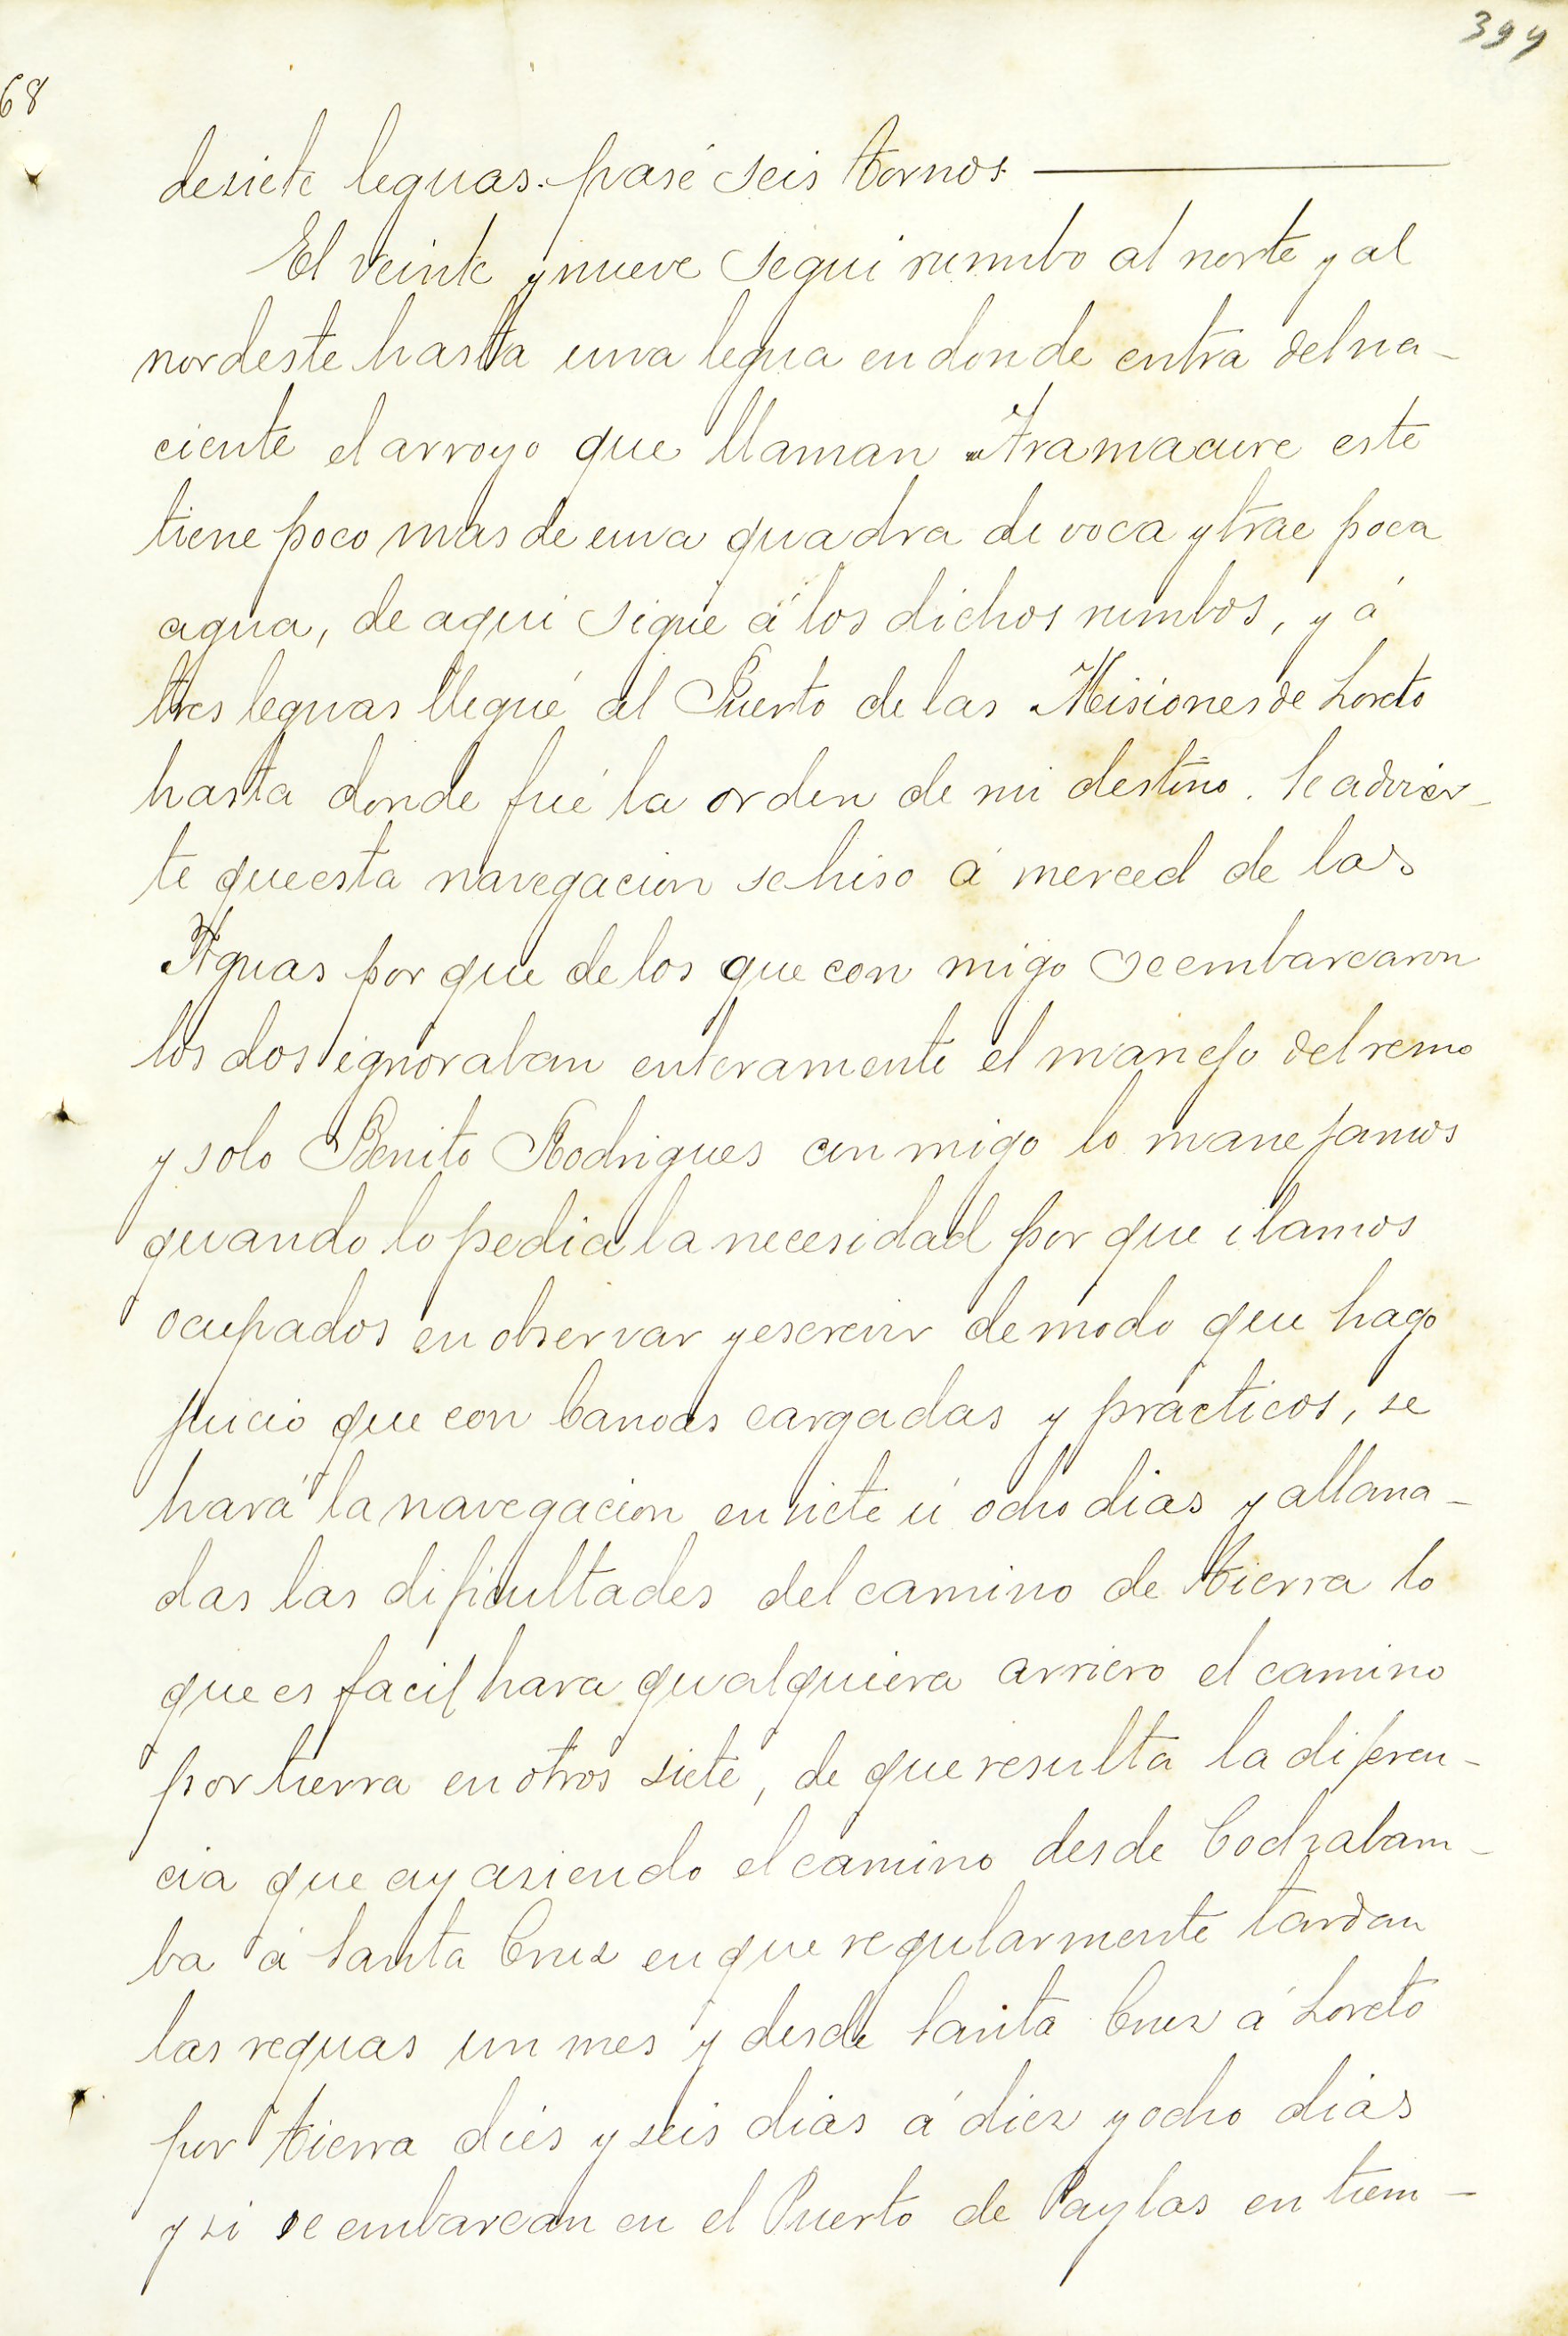 399
68
desiete leguas. pasé seis tornos
El veinte y nueve segui rumbo al norte y al
nordeste hasta una legua endonde entra delna-
ciente elarroyo que llaman Aramacure este
tiene poco mas de una quadra de voca ytrae poca
agua, de aqui sigue á los dichos rumbos, y á
tres leguas llegué al Puerto de las Misiones de Loreto
hasta donde fué la orden de mi destino. Se advier-
te queesta navegacion sehiso á merced de las
Aguas por que de los que con migo seembarcaron
los dos ignoraban enteramente el manejo del remo
y solo Benito Rodrigues con migo lo manejamos
quando lo pedia la necesidad por que ibamos
ocupados en observar yescrevir demodo que hago
juicio que con Canoas cargadas y prácticos, se
hará la navegacion en siete ú ocho dias y allana-
das las dificultades del camino de tierra lo
que es facil hara qualquiera arriero el camino
por tierra en otros siete, de queresulta la diferen-
cia que ay asiendo el camino desde Cochabam-
ba á Santa Cruz enque regularmente tardan
las requas un mes y desde Santa Cruz á Loreto
por tierra dies y seis dias á diez yocho dias
y si se embarcan en el Puerto de Paylas en tiem-